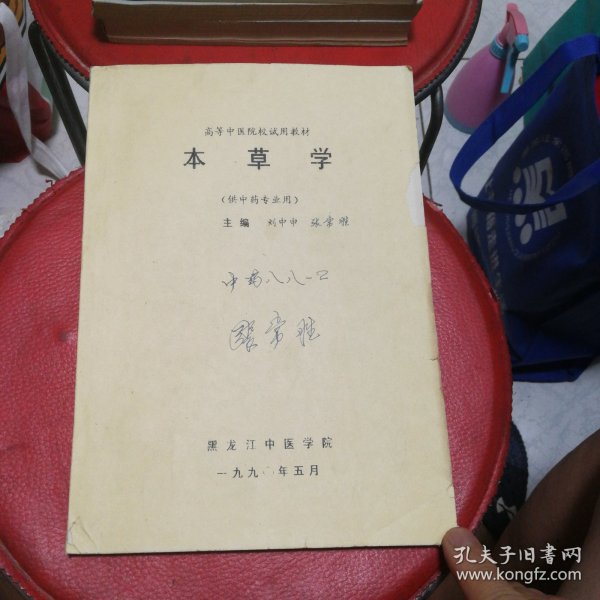 高等中医院校试用教材
本草学
(供中药专业用)
主编 刘中申 张常胜
中药八八一二
张常胜
黑龙江中医学院
一九九 年五月
孔夫子旧书网
www.kongfz.com